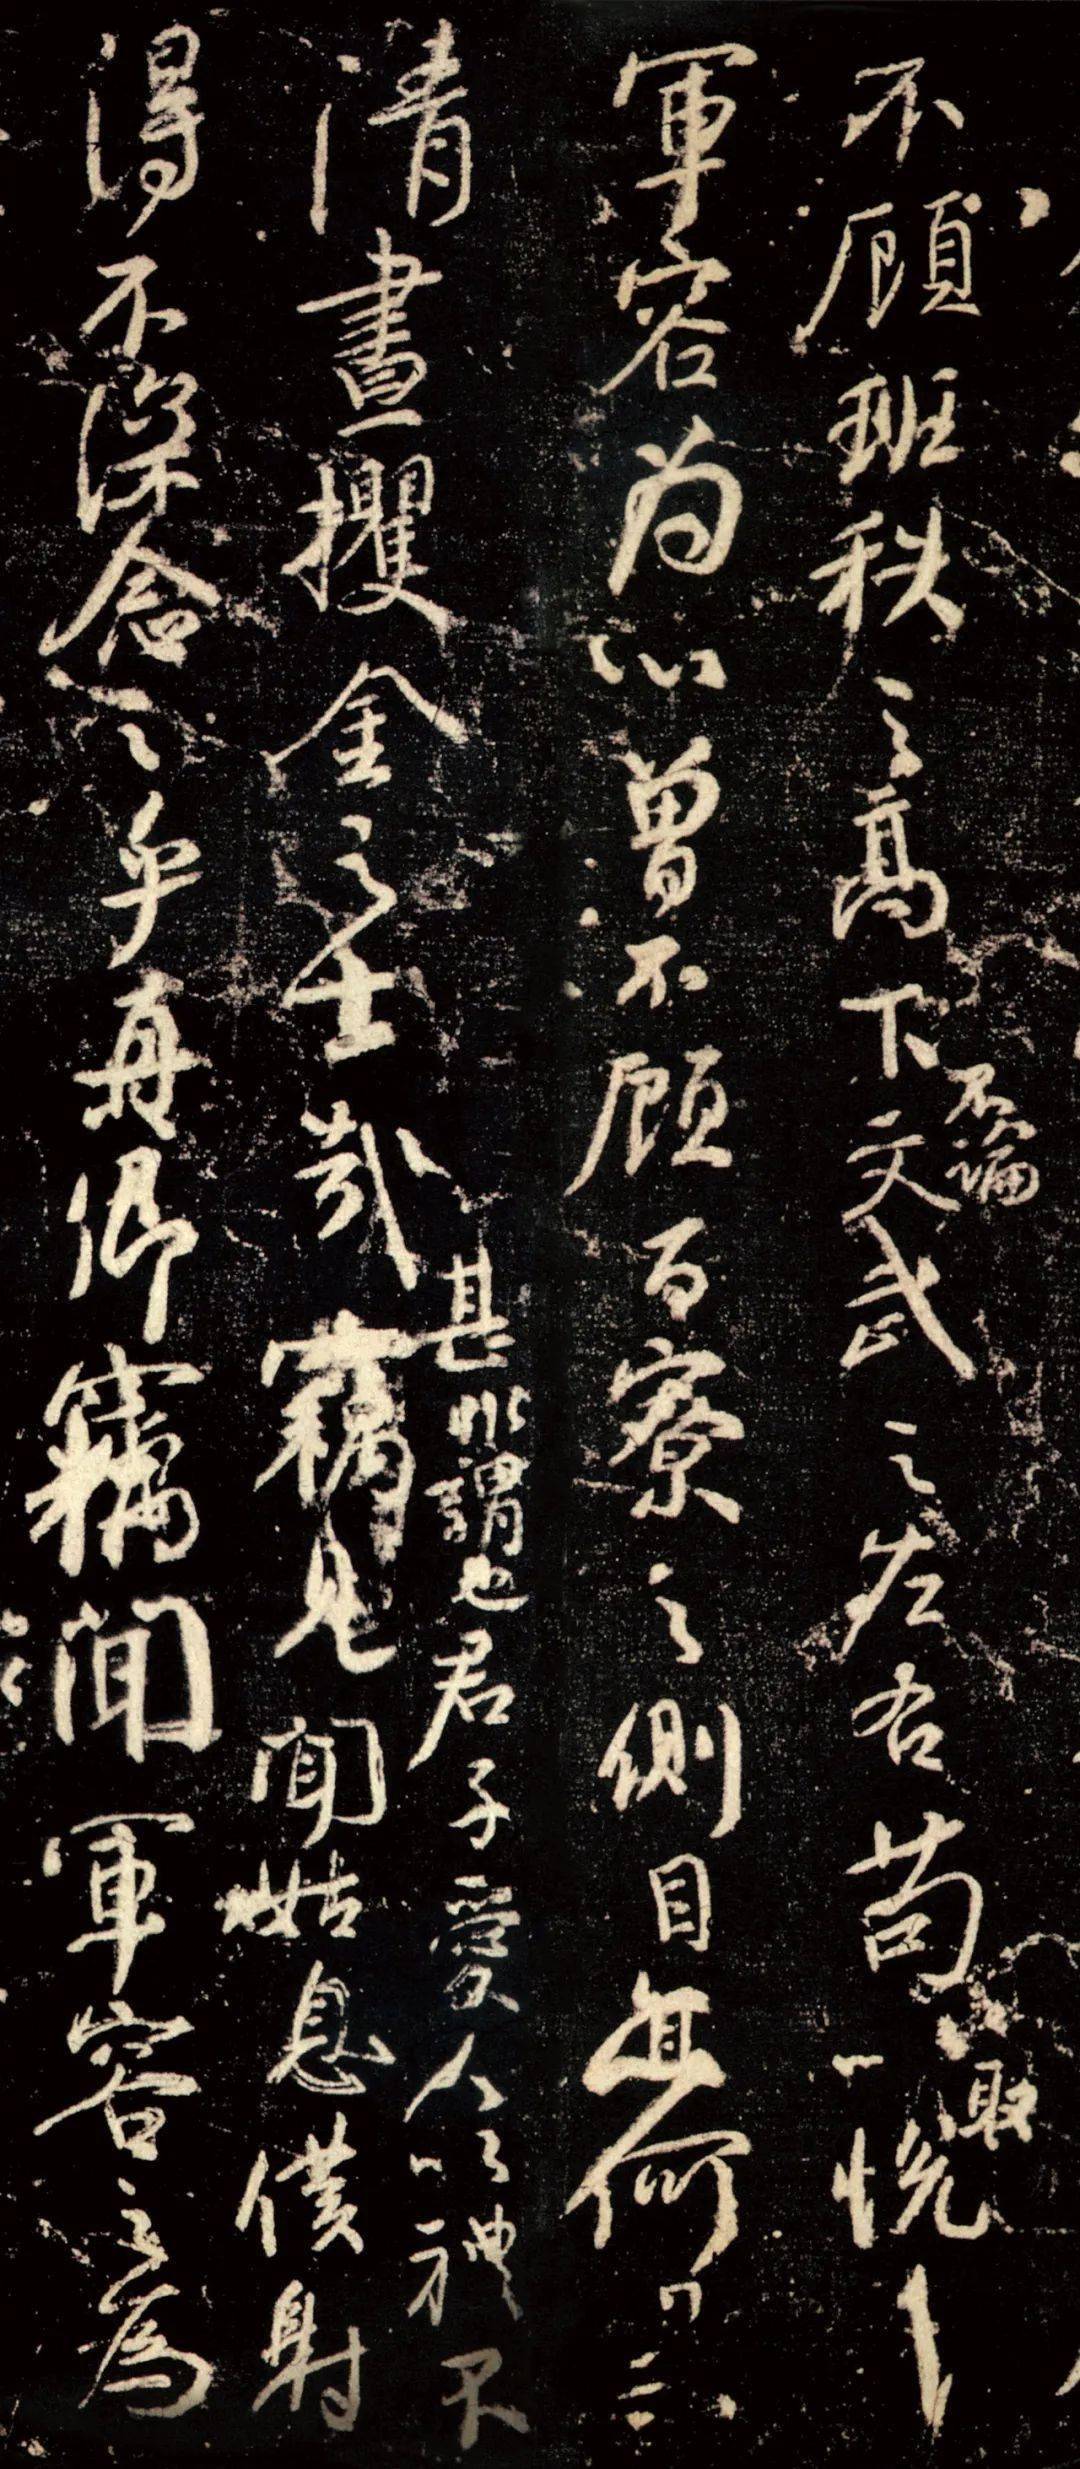 不顧班秩之高下不論文武之左右苟以取悅
軍容為心曾不顧百寮之側目亦何異
清晝攫金之士哉
甚非謂也君子愛人以禮不
竊見聞姑息僕射
得不深念之乎真卿竊聞軍容之為